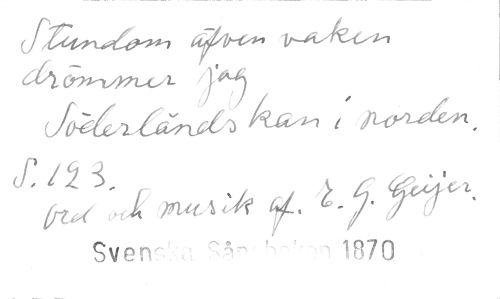 Stundom äfven vaken
drömmer jag
Söderländskan i norden.
S. 123.
ord och musik af. E. G. Geijer.
Svenska Sångboken 1870